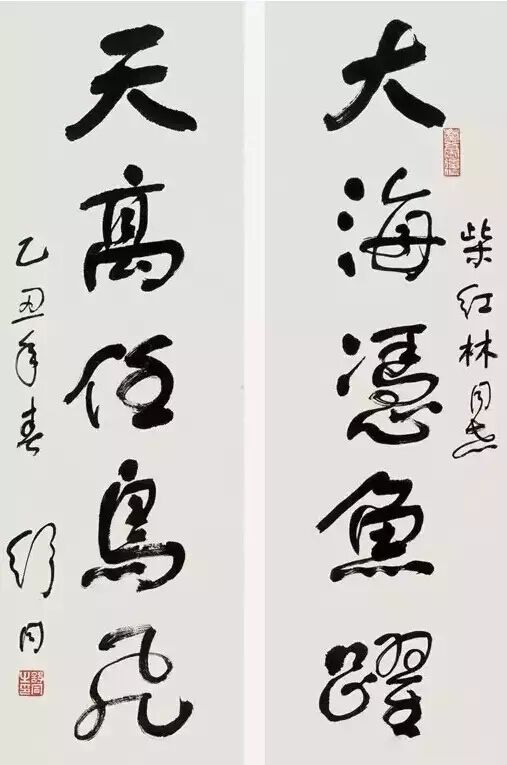 柴红林同志
大海憑魚躍
天高任鳥飞
乙丑年春 舒同